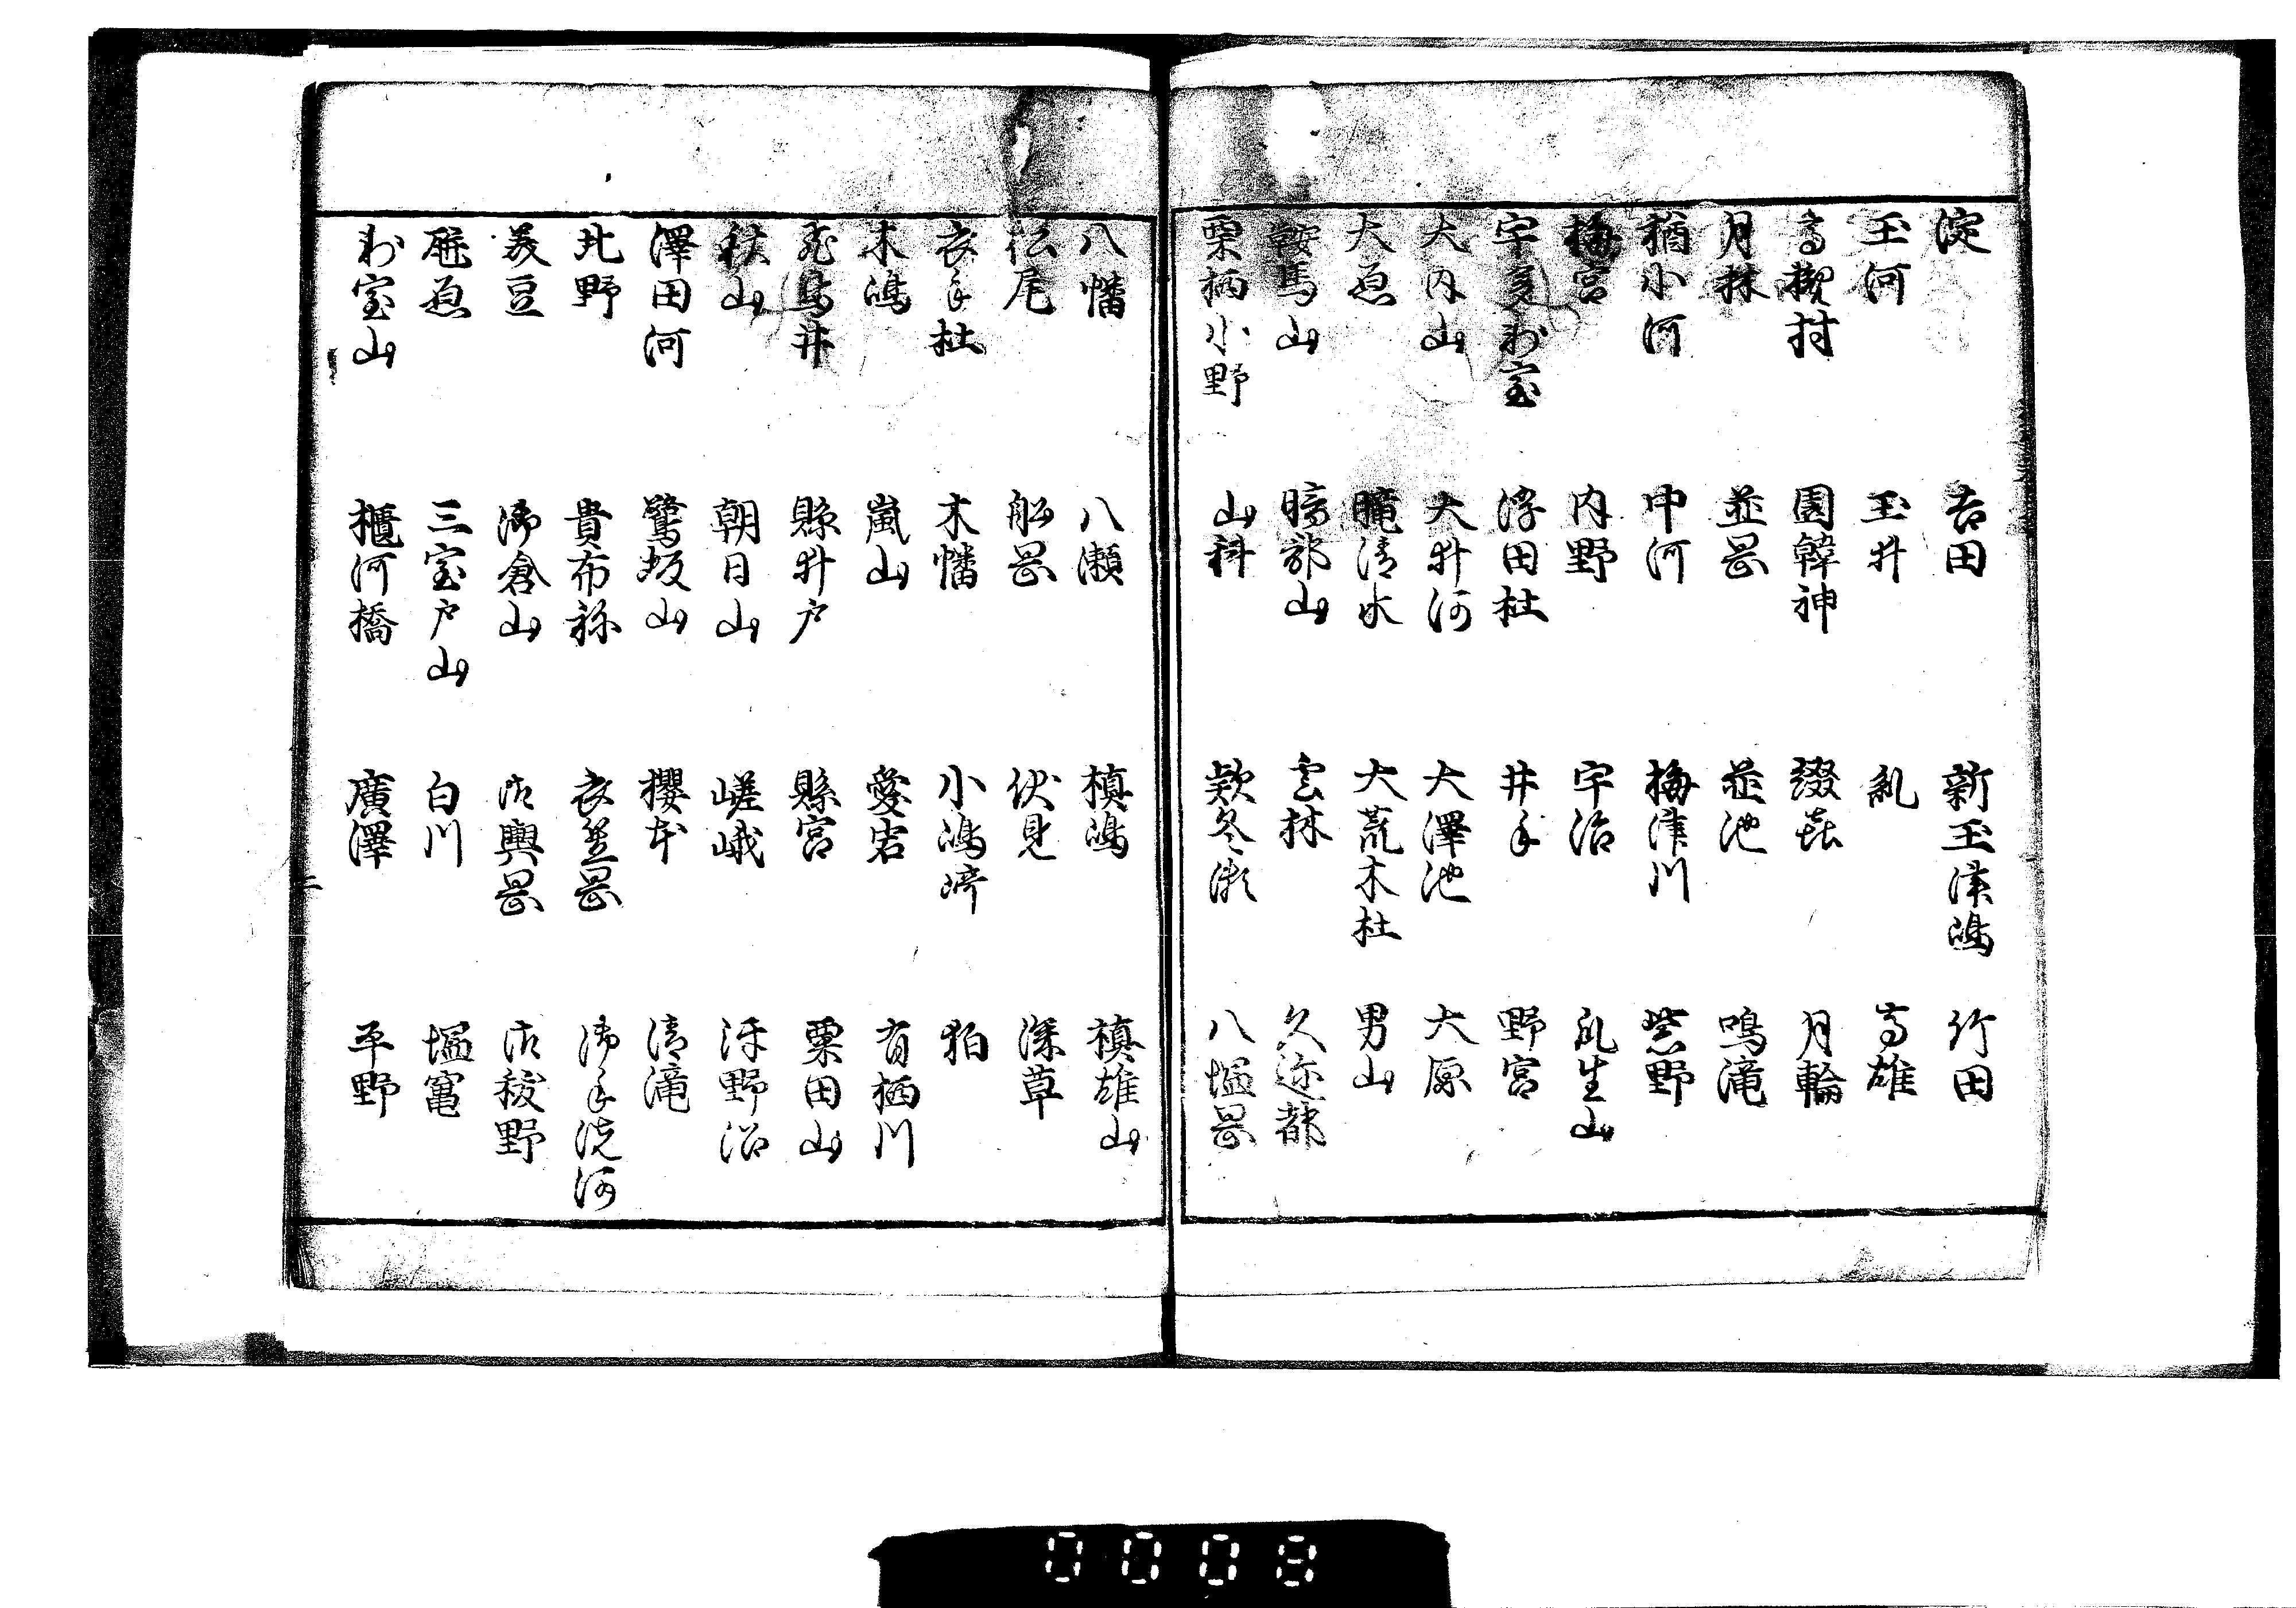 淀 吉田 新玉津嶋 竹田
玉河 玉井 糺 高雄
高槻村 園韓神 綴喜 月輪
月林 並岡 並池 鳴滝
楢小河 中河 梅津川 紫野
梅宮 内野 宇治 瓜生山
宇多御室 浮田杜 井手 野宮
大内山 大井河 大澤池 大原
大原 朧清水 大荒木杜 男山
鞍馬山 暗部山 雲林 久迩都
栗栖小野 山科 款冬瀬 八塩岡
八幡 八瀬 槙嶋 槙雄山
松尾 船岡 伏見 深草
衣手杜 木幡 小嶋崎 狛
木嶋 嵐山 愛宕 有栖川
飛鳥井 縣井戸 縣宮 粟田山
秋山 朝日山 嵯峨 浮野沼
澤田河 鷺坂山 櫻本 清滝
北野 貴布祢 衣笠岡 御手洗河
美豆 御倉山 御輿岡 御秡野
瓶原 三室戸山 白川 塩竃
御室山 櫃河橋 廣澤 平野
0008